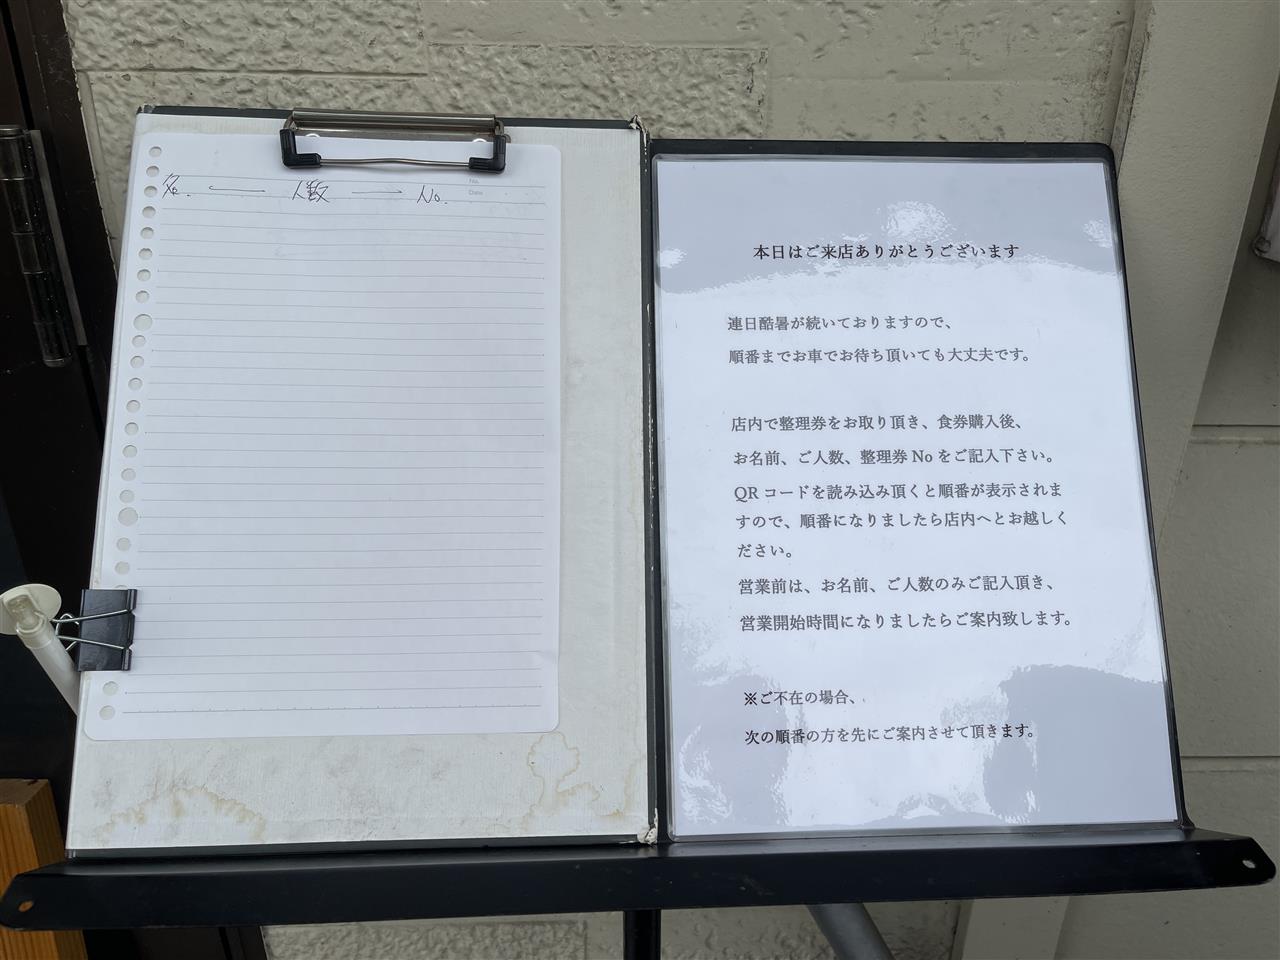 No.
Date
名. — 人数 — No.
本日はご来店ありがとうございます
連日酷暑が続いておりますので、
順番までお車でお待ち頂いても大丈夫です。
店内で整理券をお取り頂き、食券購入後、
お名前、ご人数、整理券 No をご記入下さい。
QR コードを読み込み頂くと順番が表示されま
すので、順番になりましたら店内へとお越しく
ださい。
営業前は、お名前、ご人数のみご記入頂き、
営業開始時間になりましたらご案内致します。
※ご不在の場合、
次の順番の方を先にご案内させて頂きます。